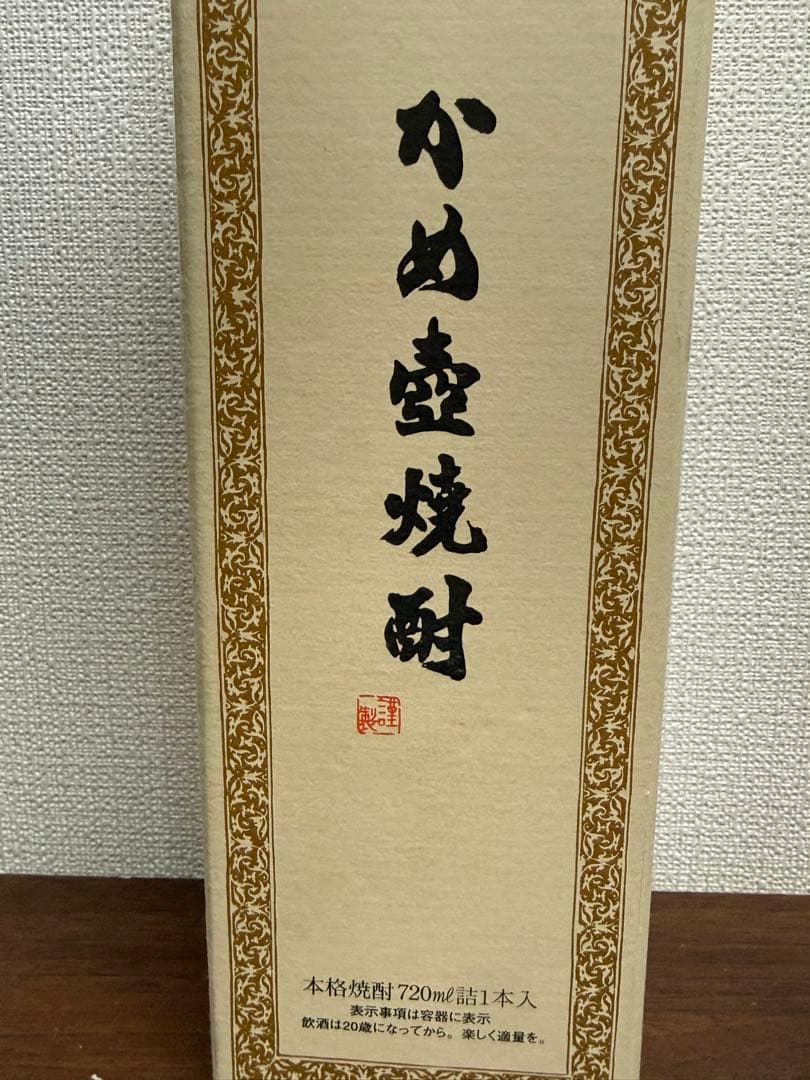 かめ壺焼酎
謹製
本格焼酎720ml詰1本入
表示事項は容器に表示
飲酒は20歳になってから。楽しく適量を。